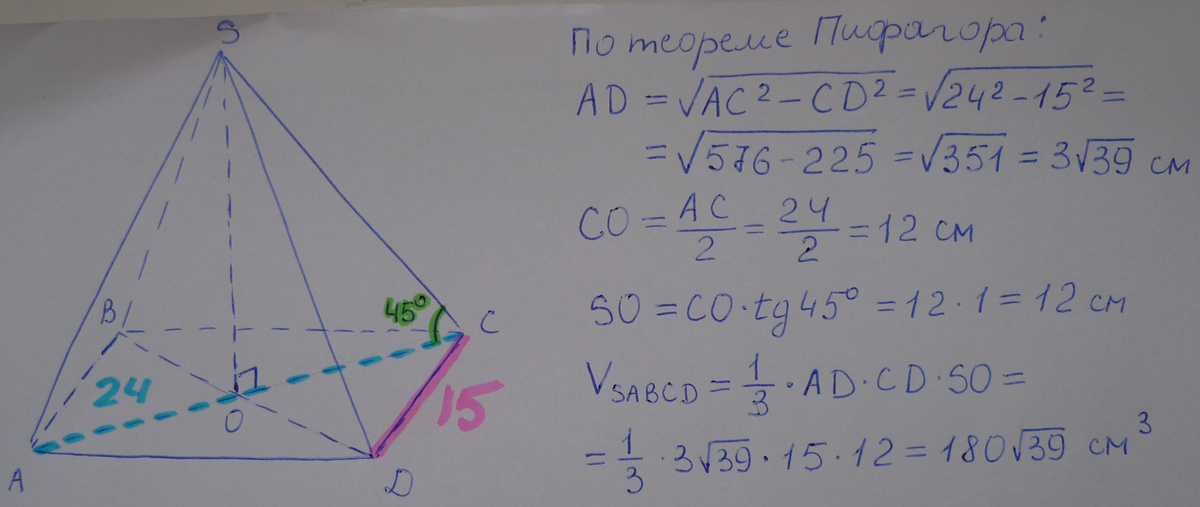 S
B
A
O
D
C
24
15
45°
По теореме Пифагора:
AD = √(AC² − CD²) = √(24² − 15²) =
= √(576 − 225) = √351 = 3√39 см
CO = AC/2 = 24/2 = 12 см
SO = CO · tg 45° = 12 · 1 = 12 см
V_SABCD = 1/3 · AD · CD · SO =
= 1/3 · 3√39 · 15 · 12 = 180√39 см³